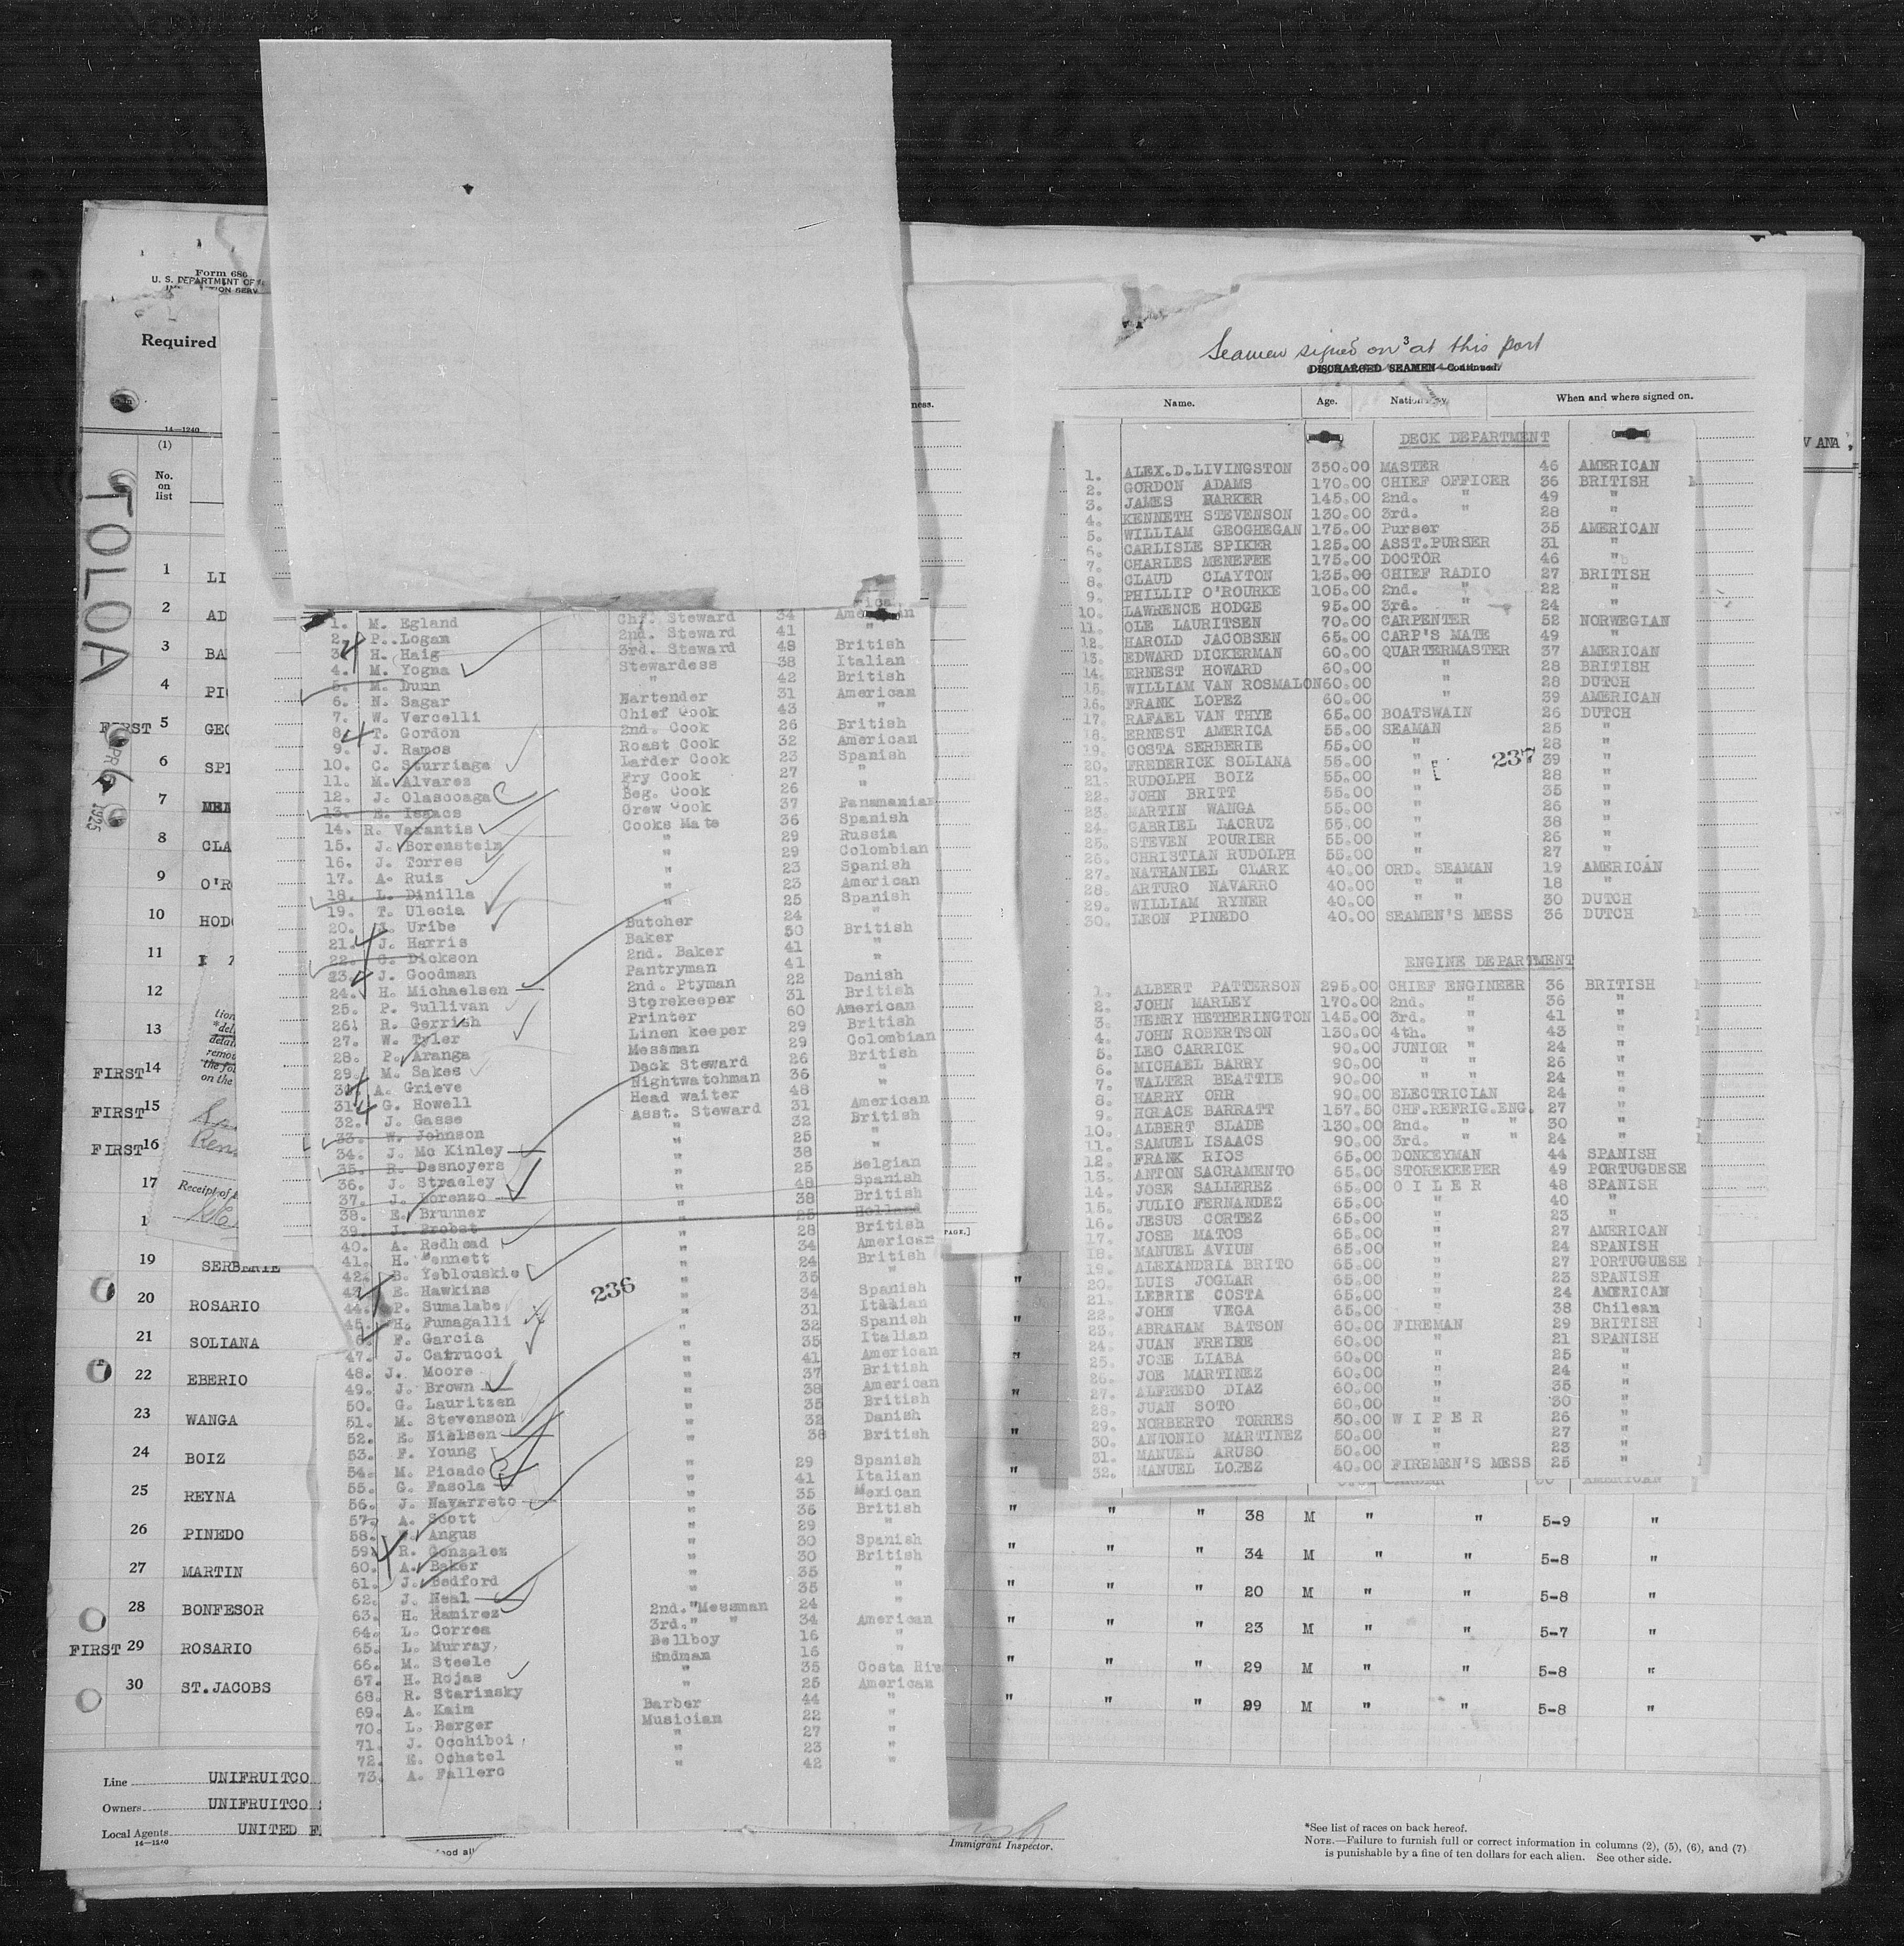 Form 686
U. S. DEPARTMENT OF
Required
14—1240
(1)
No.
on
list
TOLOA
1 LI
2 AD
3 BA
4 PI
FIRST 5 GEO
6 SPI
7
8 CLA
9 O'R
10 HOD
11
12
13
FIRST 14
FIRST 15
FIRST 16
17
19 SERBERIE
20 ROSARIO
21 SOLIANA
22 EBERIO
23 WANGA
24 BOIZ
25 REYNA
26 PINEDO
27 MARTIN
28 BONFESOR
FIRST 29 ROSARIO
30 ST.JACOBS
Line UNIFRUITCO
Owners UNIFRUITCO
Local Agents UNITED
14—1240
1. M. Egland Chf. Steward 34 American
2. P. Logan 2nd. Steward 41 "
3. H. Haig 3rd. Steward 48 British
4. M. Yogna Stewardess 38 Italian
5. M. Dunn " 42 British
6. N. Sagar Bartender 31 American
7. W. Vercelli Chief Cook 43 "
8. T. Gordon 2nd. Cook 26 British
9. J. Ramos Roast Cook 32 American
10. C. Sturriaga Larder Cook 23 Spanish
11. M. Alvarez Fry Cook 27 "
12. J. Olascoaga Beg. Cook 26 "
13. E. Isaacs Crew Cook 37 Panamanian
14. R. Varantis Cooks Mate 36 Spanish
15. J. Borenstein " 29 Russia
16. J. Torres " 29 Colombian
17. A. Ruiz " 23 Spanish
18. L. Dinilla " 23 American
19. T. Ulecia " 25 Spanish
20. Uribe Butcher 24 "
21. J. Harris Baker 50 British
22. C. Dickson 2nd. Baker 41 "
23. J. Goodman Pantryman 41 "
24. H. Michaelsen 2nd. Ptyman 22 Danish
25. P. Sullivan Storekeeper 31 British
26. R. Gerrish Printer 60 American
27. W. Tyler Linen keeper 29 British
28. P. Aranga Messman 29 Colombian
29. M. Sakes Deck Steward 26 British
30. A. Grieve Nightwatchman 36 "
31. G. Howell Head waiter 48 "
32. J. Gasse Asst. Steward 31 American
33. W. Johnson " 32 British
34. J. Mc Kinley " 25 "
35. R. Desnoyers " 38 "
36. J. Straeley " 25 Belgian
37. J. Lorenzo " 48 Spanish
38. E. Brunner " 38 British
39. J. Probst " 25 Holland
40. A. Redhead " 28 British
41. H. Bennett " 34 American
42. B. Yeblonskie " 24 British
43. E. Hawkins " 35 "
44. P. Sumalabe " 34 Spanish
45. H. Fumagalli " 31 Italian
46. F. Garcia " 32 Spanish
47. J. Carrucci " 35 Italian
48. J. Moore " 41 American
49. J. Brown " 37 British
50. G. Lauritzen " 38 American
51. M. Stevenson " 35 British
52. E. Nielsen " 32 Danish
53. F. Young " 38 British
54. M. Picado " 29 Spanish
55. G. Fasola " 41 Italian
56. J. Navarreto " 35 Mexican
57. A. Scott " 36 British
58. Angus " 29 "
59. R. Gonzalez " 30 Spanish
60. A. Baker " 30 British
61. J. Bedford " 35 "
62. J. Neal " 35 "
63. H. Ramirez 2nd. Messman 24 "
64. L. Correa 3rd. " 34 American
65. L. Murray Bellboy 16 "
66. M. Steele Endman 16 "
67. H. Rojas " 35 Costa Ric
68. R. Starinsky " 25 American
69. A. Kaim Barber 44 "
70. L. Berger Musician 22 "
71. J. Occhiboi " 27 "
72. E. Ochetel " 23 "
73. A. Fallero " 42 "
236
Immigrant Inspector.
Seamen signed on at this port
3
DISCHARGED SEAMEN—Continued.
Name. Age. Nationality. When and where signed on.
DECK DEPARTMENT
1. ALEX.D.LIVINGSTON 350.00 MASTER 46 AMERICAN
2. GORDON ADAMS 170.00 CHIEF OFFICER 36 BRITISH
3. JAMES HARKER 145.00 2nd. " 49 "
4. KENNETH STEVENSON 130.00 3rd. " 28 "
5. WILLIAM GEOGHEGAN 175.00 Purser 35 AMERICAN
6. CARLISLE SPIKER 125.00 ASST.PURSER 31 "
7. CHARLES MENEFEE 175.00 DOCTOR 46 "
8. CLAUD CLAYTON 135.00 CHIEF RADIO 27 BRITISH
9. PHILLIP O'ROURKE 105.00 2nd. " 22 "
10. LAWRENCE HODGE 95.00 3rd. " 24 "
11. OLE LAURITSEN 70.00 CARPENTER 52 NORWEGIAN
12. HAROLD JACOBSEN 65.00 CARP'S MATE 49 "
13. EDWARD DICKERMAN 60.00 QUARTERMASTER 37 AMERICAN
14. ERNEST HOWARD 60.00 " 28 BRITISH
15. WILLIAM VAN ROSMALON 60.00 " 28 DUTCH
16. FRANK LOPEZ 60.00 " 39 AMERICAN
17. RAFAEL VAN THYE 65.00 BOATSWAIN 26 DUTCH
18. ERNEST AMERICA 55.00 SEAMAN 25 "
19. COSTA SERBERIE 55.00 " 28 "
20. FREDERICK SOLIANA 55.00 " 39 "
21. RUDOLPH BOIZ 55.00 " 28 "
22. JOHN BRITT 55.00 " 35 "
23. MARTIN WANGA 55.00 " 26 "
24. GABRIEL LACRUZ 55.00 " 38 "
25. STEVEN POURIER 55.00 " 26 "
26. CHRISTIAN RUDOLPH 55.00 " 27 "
27. NATHANIEL CLARK 40.00 ORD. SEAMAN 19 AMERICAN
28. ARTURO NAVARRO 40.00 " " 18 "
29. WILLIAM RYNER 40.00 " " 30 DUTCH
30. LEON PINEDO 40.00 SEAMEN'S MESS 36 DUTCH
237
ENGINE DEPARTMENT
1. ALBERT PATTERSON 295.00 CHIEF ENGINEER 36 BRITISH
2. JOHN MARLEY 170.00 2nd. " 36 "
3. HENRY HETHERINGTON 145.00 3rd. " 41 "
4. JOHN ROBERTSON 130.00 4th. " 43 "
5. LEO CARRICK 90.00 JUNIOR " 24 "
6. MICHAEL BARRY 90.00 " " 26 "
7. WALTER BEATTIE 90.00 " " 24 "
8. HARRY ORR 90.00 ELECTRICIAN 24 "
9. HORACE BARRATT 157.50 CHF.REFRIG.ENG. 27 "
10. ALBERT SLADE 130.00 2nd. " " 30 "
11. SAMUEL ISAACS 90.00 3rd. " " 24 "
12. FRANK RIOS 65.00 DONKEYMAN 44 SPANISH
13. ANTON SACRAMENTO 65.00 STOREKEEPER 49 PORTUGUESE
14. JOSE SALLEREZ 65.00 O I L E R 48 SPANISH
15. JULIO FERNANDEZ 65.00 " 40 "
16. JESUS CORTEZ 65.00 " 23 "
17. JOSE MATOS 65.00 " 27 AMERICAN
18. MANUEL AVIUN 65.00 " 24 SPANISH
19. ALEXANDRIA BRITO 65.00 " 27 PORTUGUESE
20. LUIS JOGLAR 65.00 " 23 SPANISH
21. LEBRIE COSTA 65.00 " 24 AMERICAN
22. JOHN VEGA 65.00 " 38 Chilean
23. ABRAHAM BATSON 60.00 FIREMAN 29 BRITISH
24. JUAN FREIRE 60.00 " 21 SPANISH
25. JOSE LIABA 60.00 " 25 "
26. JOE MARTINEZ 60.00 " 24 "
27. ALFREDO DIAZ 60.00 " 35 "
28. JUAN SOTO 60.00 " 30 "
29. NORBERTO TORRES 50.00 W I P E R 26 "
30. ANTONIO MARTINEZ 50.00 " 27 "
31. MANUEL ARUSO 50.00 " 23 "
32. MANUEL LOPEZ 40.00 FIREMEN'S MESS 25 "
" " " 38 M " " 5-9 "
" " " 34 M " " 5-8 "
" " " 20 M " " 5-8 "
" " " 23 M " " 5-7 "
" " " 29 M " " 5-8 "
" " " 29 M " " 5-8 "
*See list of races on back hereof.
NOTE.—Failure to furnish full or correct information in columns (2), (5), (6), and (7)
is punishable by a fine of ten dollars for each alien. See other side.